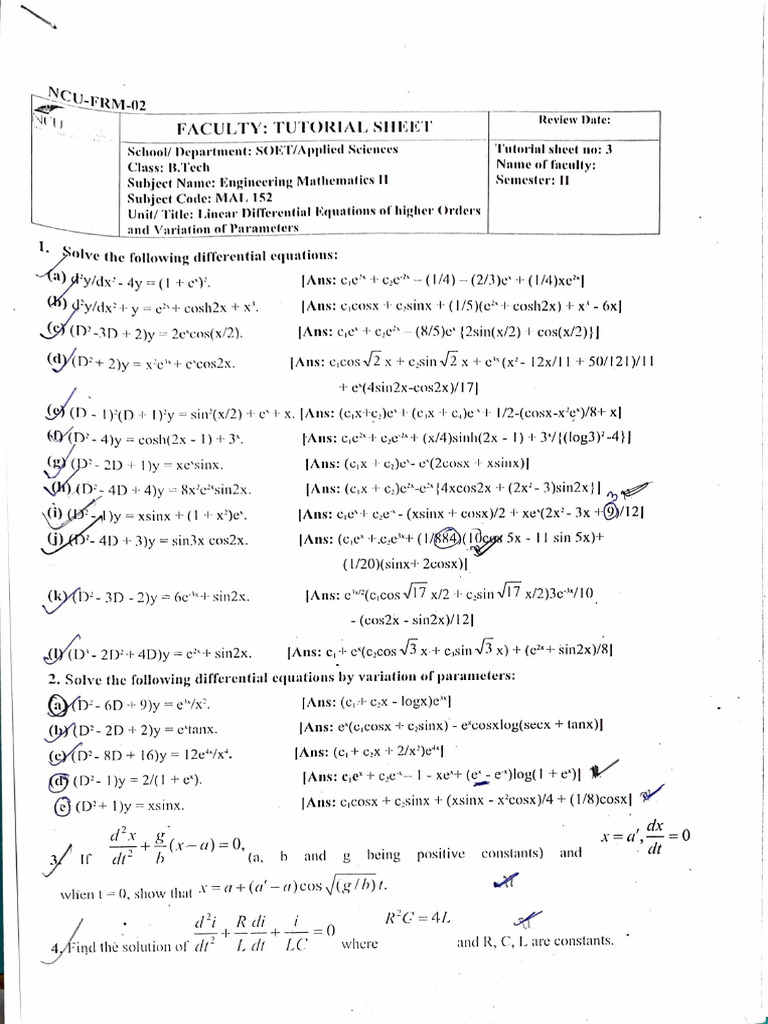 NCU-FRM-02
NCU
FACULTY: TUTORIAL SHEET
Review Date:
School/ Department: SOET/Applied Sciences
Class: B.Tech
Subject Name: Engineering Mathematics II
Subject Code: MAL 152
Unit/ Title: Linear Differential Equations of higher Orders
and Variation of Parameters
Tutorial sheet no: 3
Name of faculty:
Semester: II
1. Solve the following differential equations:
(a) d²y/dx² - 4y = (1 + eˣ)². [Ans: c₁e²ˣ + c₂e⁻²ˣ – (1/4) – (2/3)eˣ + (1/4)xe²ˣ]
(b) d²y/dx² + y = e²ˣ + cosh2x + x³. [Ans: c₁cosx + c₂sinx + (1/5)(e²ˣ + cosh2x) + x³ - 6x]
(c) (D² -3D + 2)y = 2eˣcos(x/2). [Ans: c₁eˣ + c₂e²ˣ – (8/5)eˣ {2sin(x/2) + cos(x/2)}]
(d) (D² + 2)y = x²e³ˣ + eˣcos2x. [Ans: c₁cos √2 x + c₂sin √2 x + e³ˣ (x² - 12x/11 + 50/121)/11
+ eˣ(4sin2x-cos2x)/17]
(e) (D - 1)²(D + 1)²y = sin²(x/2) + eˣ + x. [Ans: (c₁x+c₂)eˣ + (c₃x + c₄)e⁻ˣ + 1/2-(cosx-x²eˣ)/8+ x]
(f) (D² - 4)y = cosh(2x - 1) + 3ˣ. [Ans: c₁e²ˣ + c₂e⁻²ˣ + (x/4)sinh(2x - 1) + 3ˣ/{(log3)² -4}]
(g) (D² - 2D + 1)y = xeˣsinx. [Ans: (c₁x + c₂)eˣ- eˣ(2cosx + xsinx)]
(h) (D² - 4D + 4)y = 8x²e²ˣsin2x. [Ans: (c₁x + c₂)e²ˣ-e²ˣ{4xcos2x + (2x² - 3)sin2x}]
(i) (D² - 1)y = xsinx + (1 + x²)eˣ. [Ans: c₁eˣ + c₂e⁻ˣ - (xsinx + cosx)/2 + xeˣ(2x² - 3x + 9)/12]
(j) (D² - 4D + 3)y = sin3x cos2x. [Ans: (c₁eˣ + c₂e³ˣ + (1/884)(10cos 5x - 11 sin 5x)+
(1/20)(sinx+ 2cosx)]
(k) (D² - 3D - 2)y = 6e⁻³ˣ + sin2x. [Ans: e³ˣ/²(c₁cos √17 x/2 + c₂sin √17 x/2)3e⁻³ˣ/10
- (cos2x - sin2x)/12]
(l) (D³ - 2D² + 4D)y = e²ˣ + sin2x. [Ans: c₁ + eˣ(c₂cos √3 x + c₃sin √3 x) + (e²ˣ + sin2x)/8]
2. Solve the following differential equations by variation of parameters:
(a) (D² - 6D + 9)y = e³ˣ/x². [Ans: (c₁ + c₂x - logx)e³ˣ]
(b) (D² - 2D + 2)y = eˣtanx. [Ans: eˣ(c₁cosx + c₂sinx) - eˣcosxlog(secx + tanx)]
(c) (D² - 8D + 16)y = 12e⁴ˣ/x⁴. [Ans: (c₁ + c₂x + 2/x²)e⁴ˣ]
(d) (D² - 1)y = 2/(1 + eˣ). [Ans: c₁eˣ + c₂e⁻ˣ – 1 - xeˣ + (eˣ - e⁻ˣ)log(1 + eˣ)]
(e) (D² + 1)y = xsinx. [Ans: c₁cosx + c₂sinx + (xsinx - x²cosx)/4 + (1/8)cosx]
3. If d²x/dt² + g/b (x-a) = 0, (a, b and g being positive constants) and x = a′, dx/dt = 0
when t = 0, show that x = a + (a′ - a)cos √(g/b) t.
4. Find the solution of d²i/dt² + R/L di/dt + i/LC = 0 where R²C = 4L and R, C, L are constants.